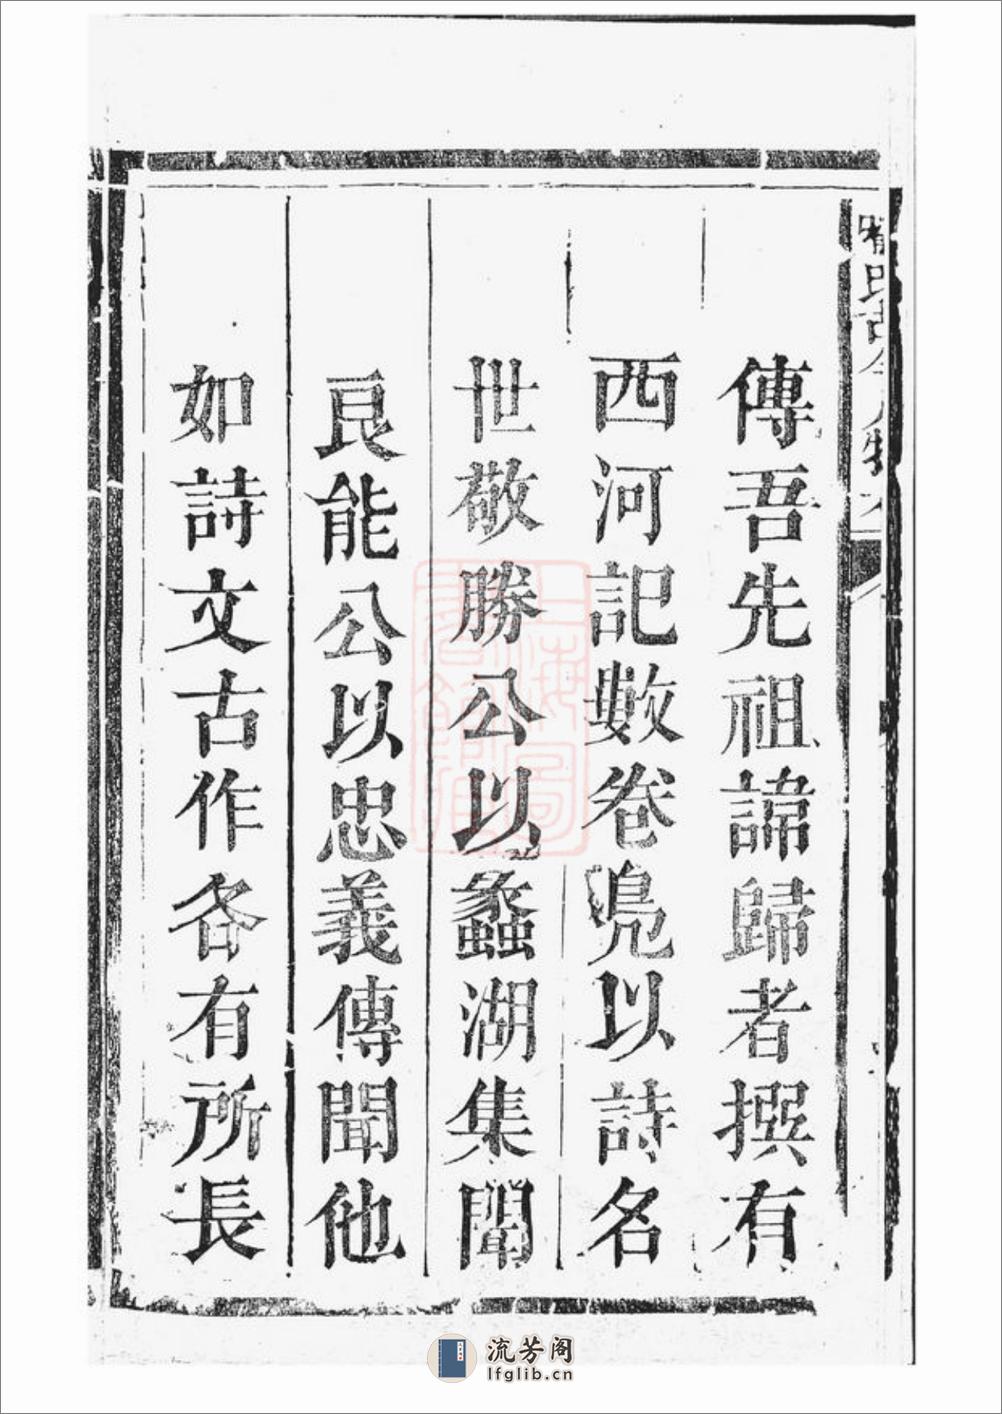 傳吾先祖諱歸者撰有
西河記數卷鳧以詩名
世敬勝公以蠡湖集聞
良能公以忠義傳聞他
如詩文古作各有所長
上海圖書館藏
流芳阁
lfglib.cn